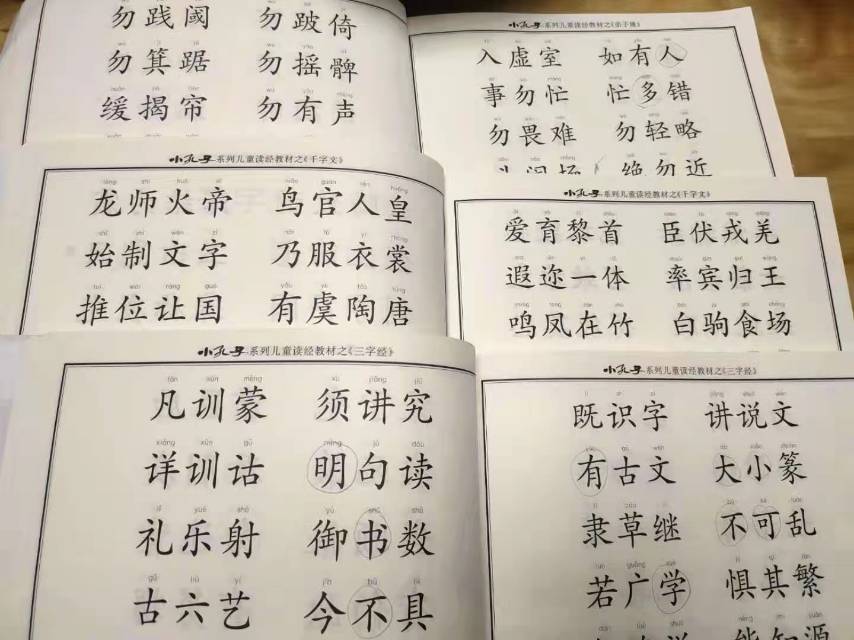 勿践阈 勿跛倚
勿箕踞 勿摇髀
缓揭帘 勿有声
小孔子系列儿童读经教材之《弟子规》
入虚室 如有人
事勿忙 忙多错
勿畏难 勿轻略
绝勿近
小孔子系列儿童读经教材之《千字文》
龙师火帝 鸟官人皇
始制文字 乃服衣裳
推位让国 有虞陶唐
小孔子系列儿童读经教材之《千字文》
爱育黎首 臣伏戎羌
遐迩一体 率宾归王
鸣凤在竹 白驹食场
小孔子系列儿童读经教材之《三字经》
凡训蒙 须讲究
详训诂 明句读
礼乐射 御书数
古六艺 今不具
小孔子系列儿童读经教材之《三字经》
既识字 讲说文
有古文 大小篆
隶草继 不可乱
若广学 惧其繁
能知源